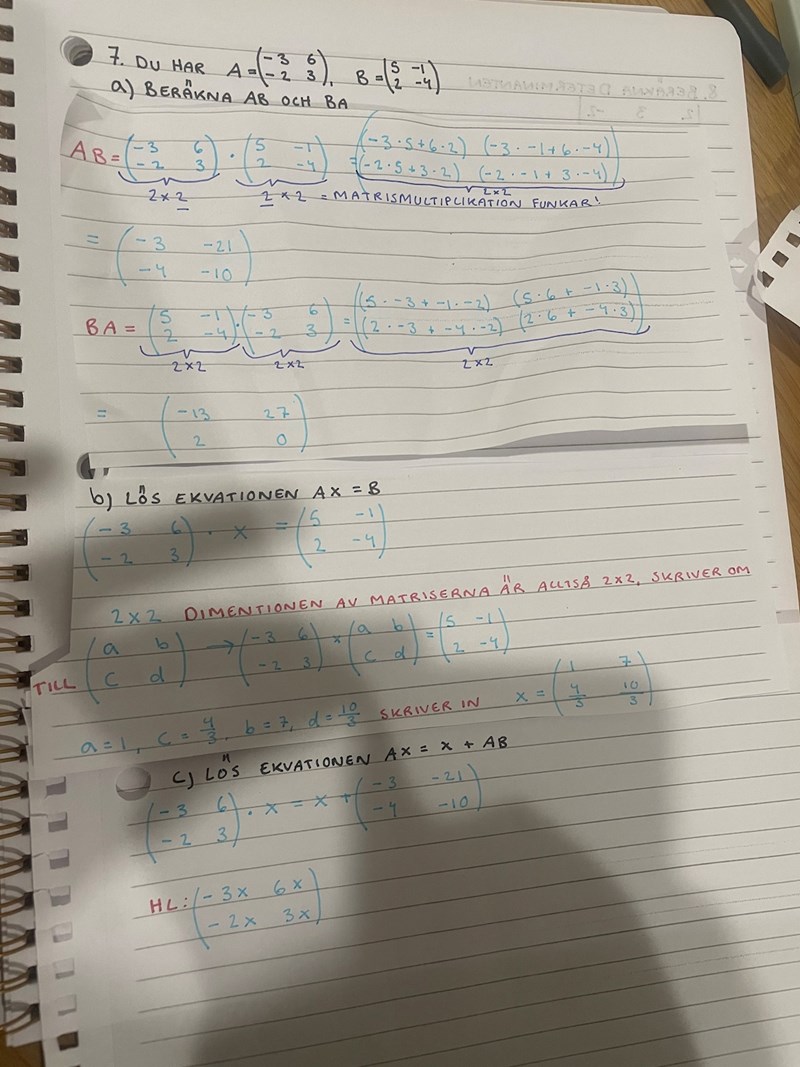 7. DU HAR A=(-3 6 / -2 3), B=(5 -1 / 2 -4)
a) BERÄKNA AB OCH BA
AB=(-3 6 / -2 3)·(5 -1 / 2 -4)=((-3·5+6·2) (-3·-1+6·-4) / (-2·5+3·2) (-2·-1+3·-4))
2×2 2×2 = MATRISMULTIPLIKATION FUNKAR! 2×2
= (-3 -21 / -4 -10)
BA=(5 -1 / 2 -4)·(-3 6 / -2 3)=((5·-3+-1·-2) (5·6+-1·3) / (2·-3+-4·-2) (2·6+-4·3))
2×2 2×2 2×2
= (-13 27 / 2 0)
b) LÖS EKVATIONEN AX=B
(-3 6 / -2 3)·X=(5 -1 / 2 -4)
2×2 DIMENTIONEN AV MATRISERNA ÄR ALLTSÅ 2×2, SKRIVER OM
TILL (a b / c d) → (-3 6 / -2 3)×(a b / c d)=(5 -1 / 2 -4)
a=1, c=4/3, b=7, d=10/3 SKRIVER IN X=(1 7 / 4/3 10/3)
c) LÖS EKVATIONEN AX=X+AB
(-3 6 / -2 3)·X=X+(-3 -21 / -4 -10)
HL:(-3x 6x / -2x 3x)